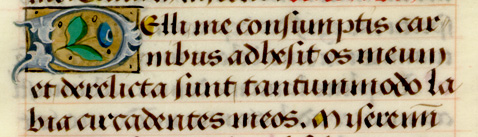 Pelli me consumptis car
nibus adhesit os meum
et derelicta sunt tantummodo la
bia circa dentes meos. Miseremī